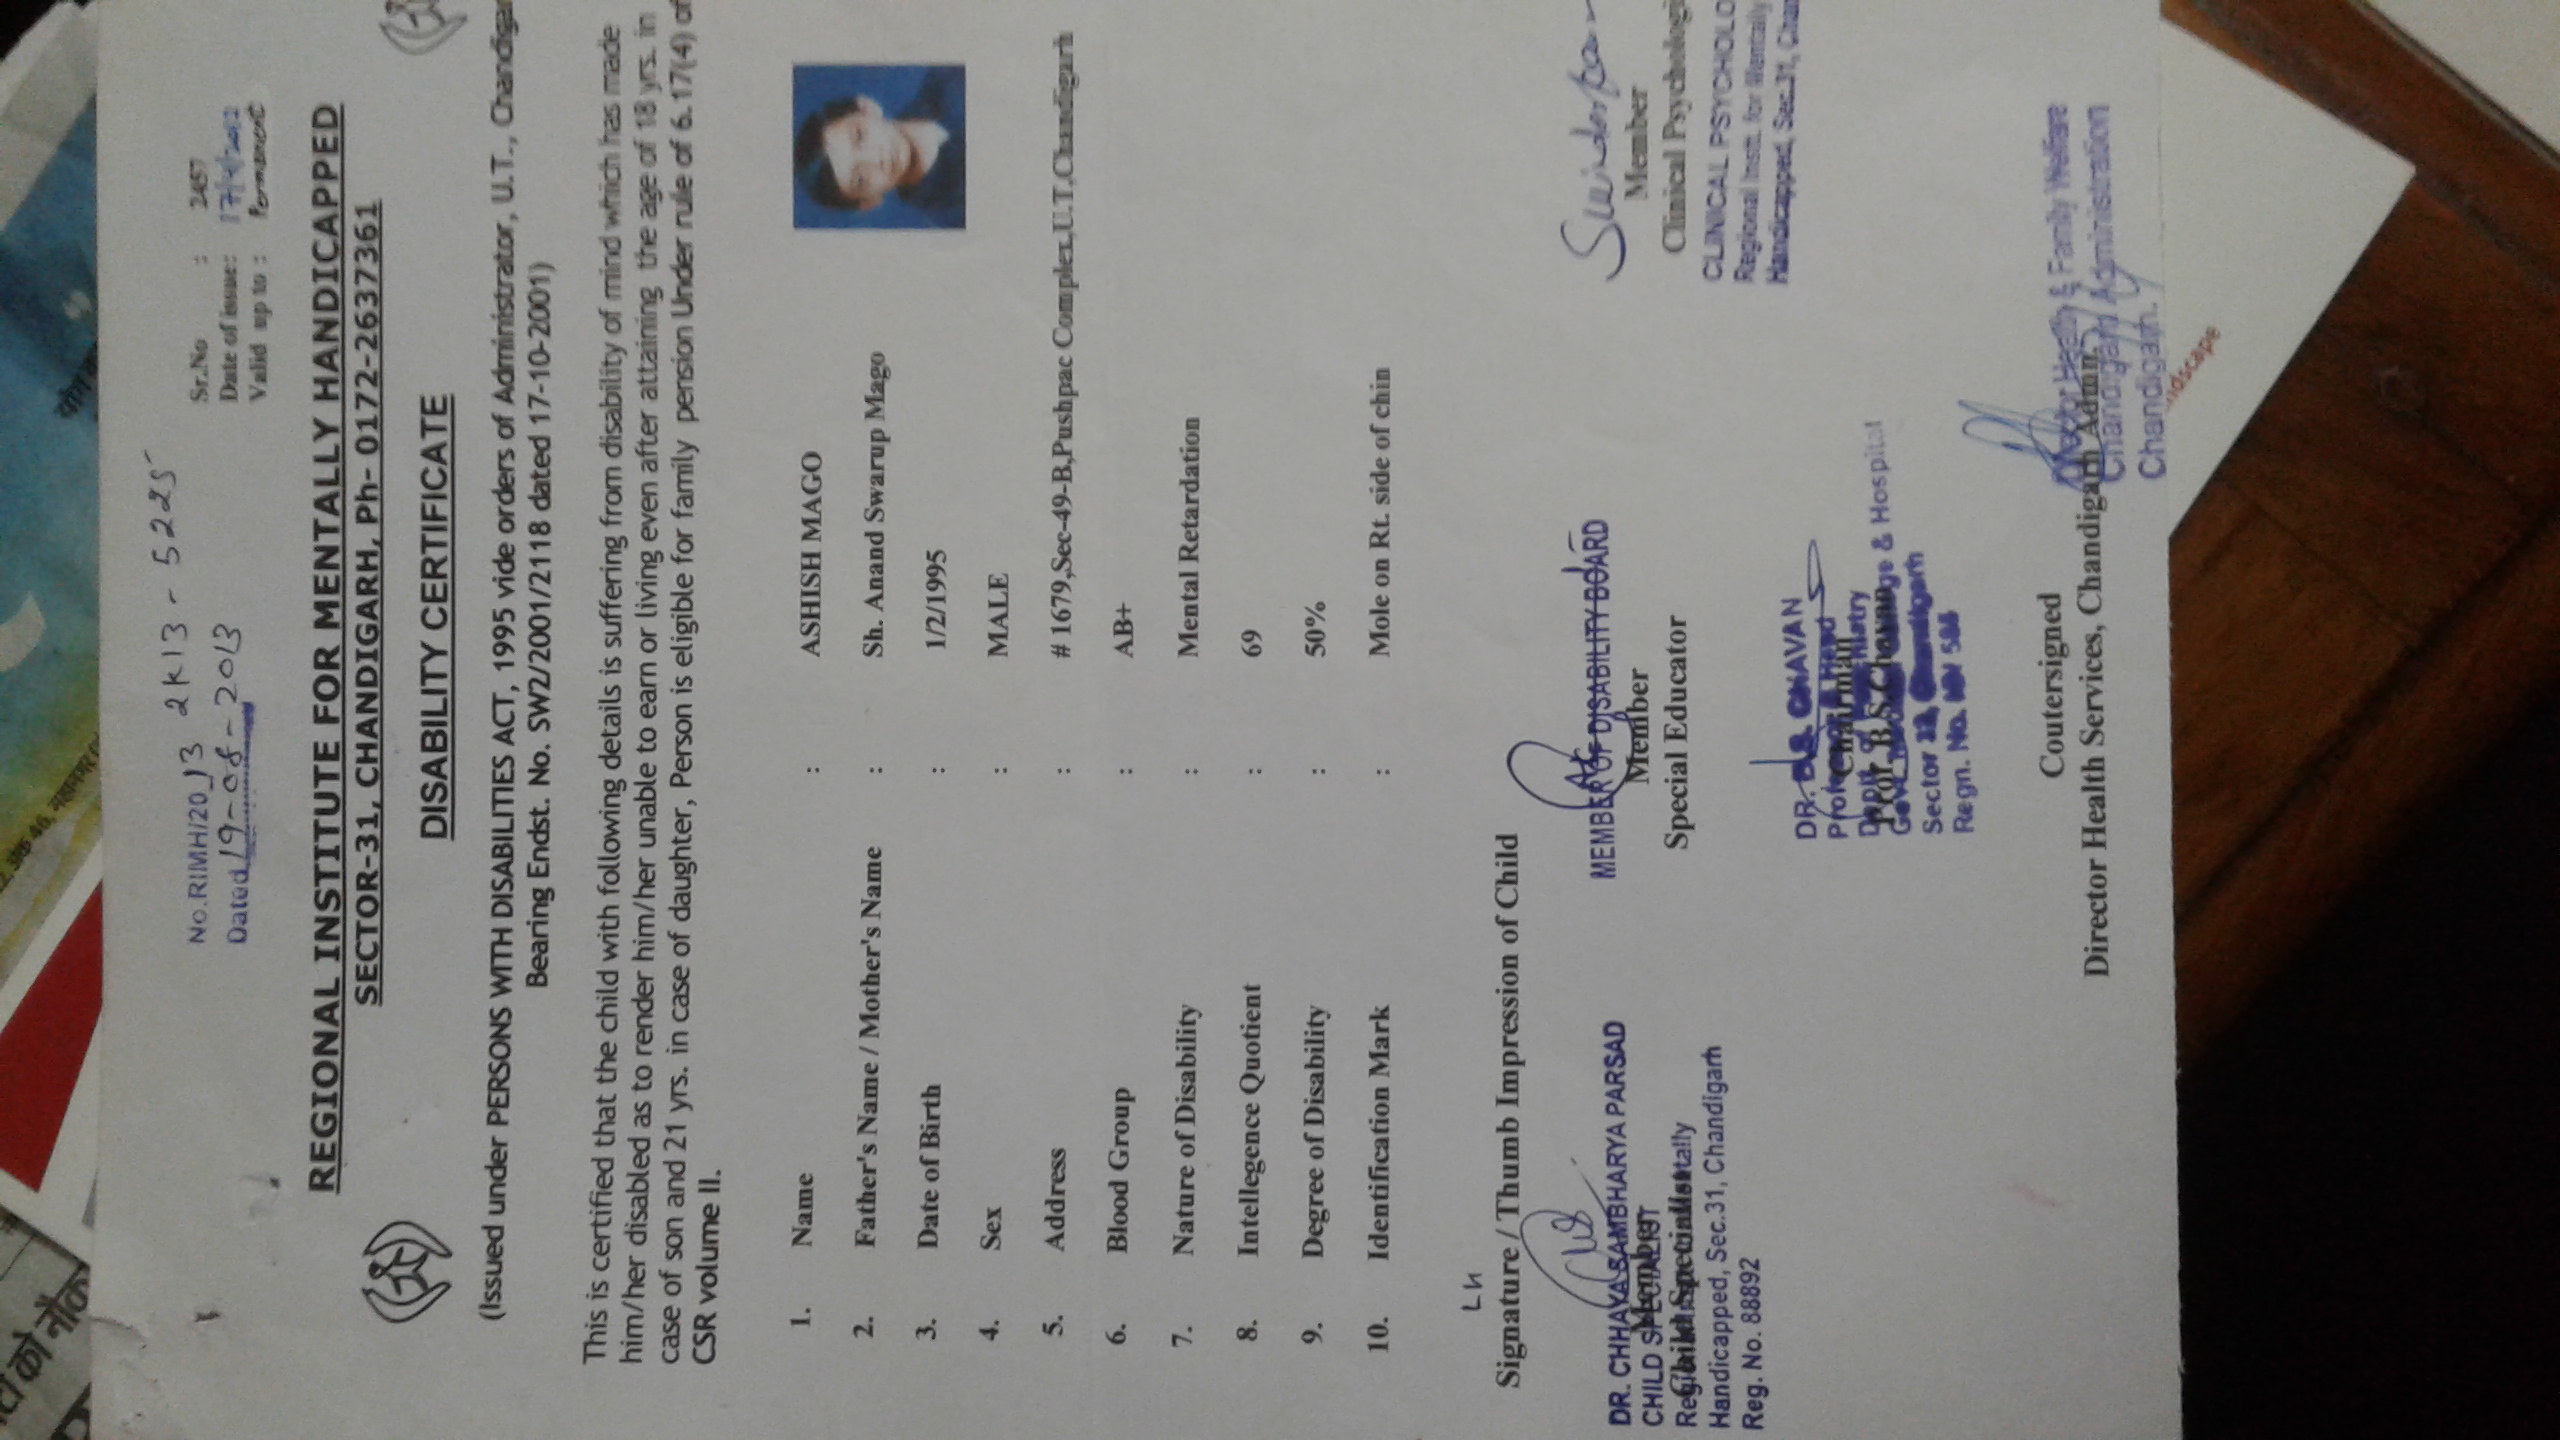 No.RIMH/2013 2K13-5225
Dated 19-08-2013
Sr.No : 2457
Date of issue:
Valid up to : Permanent
REGIONAL INSTITUTE FOR MENTALLY HANDICAPPED
SECTOR-31, CHANDIGARH, Ph- 0172-2637361
DISABILITY CERTIFICATE
(Issued under PERSONS WITH DISABILITIES ACT, 1995 vide orders of Administrator, U.T., Chandigar
Bearing Endst. No. SW2/2001/2118 dated 17-10-2001)
This is certified that the child with following details is suffering from disability of mind which has made
him/her disabled as to render him/her unable to earn or living even after attaining the age of 18 yrs. in
case of son and 21 yrs. in case of daughter, Person is eligible for family pension Under rule of 6.17(4) of
CSR volume II.
1. Name : ASHISH MAGO
2. Father's Name / Mother's Name : Sh. Anand Swarup Mago
3. Date of Birth : 1/2/1995
4. Sex : MALE
5. Address : # 1679,Sec-49-B,Pushpac Complex,U.T,Chandigarh
6. Blood Group : AB+
7. Nature of Disability : Mental Retardation
8. Intellegence Quotient : 69
9. Degree of Disability : 50%
10. Identification Mark : Mole on Rt. side of chin
Signature / Thumb Impression of Child
DR. CHHAYA SAMBHARYA PARSAD
CHILD SPECIALIST
Member
Child Specialist
Handicapped, Sec.31, Chandigarh
Reg. No. 88892
MEMBER OF DISABILITY BOARD
Member
Special Educator
Member
Clinical Psychologi
CLINICAL PSYCHOLO
Regional Instt. for Mentally
Handicapped, Sec.31, Chan
DR. B.S. CHAVAN
Chairman
Prof. B.S.Chavan
& Hospital
Sector 32, Chandigarh
Regn. No.
Coutersigned
Director Health Services, Chandigarh Admn.
Director Health & Family Welfare
Chandigarh Administration
Chandigarh.
ndscape